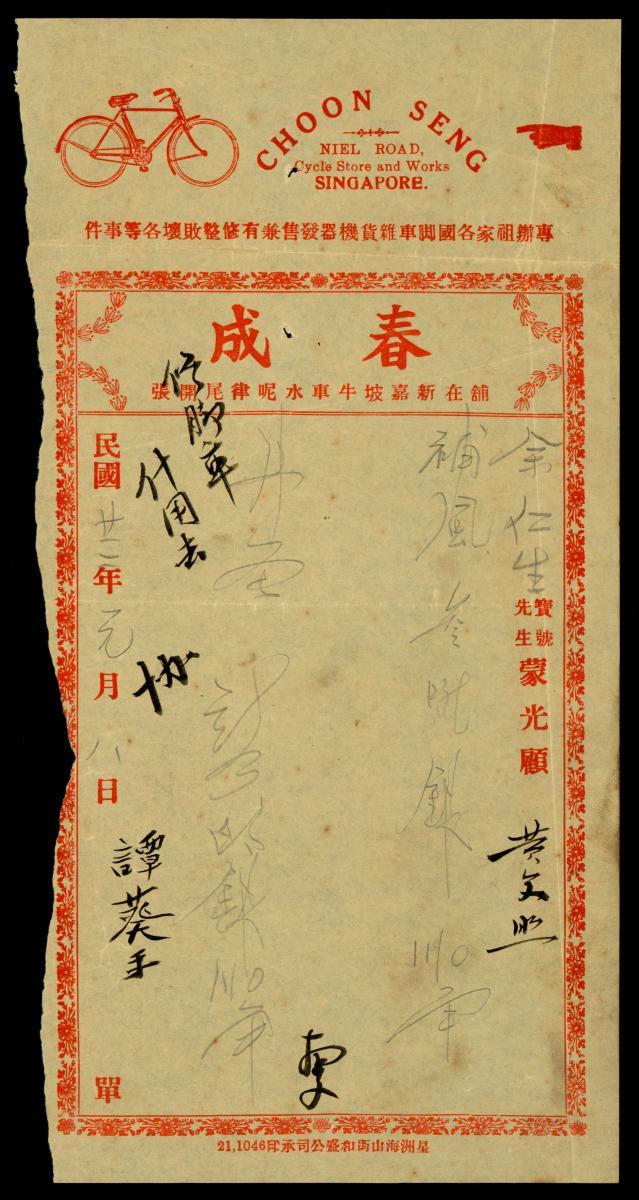 CHOON SENG
NIEL ROAD,
Cycle Store and Works
SINGAPORE.
專辦祖家各國脚車雜貨機器發售兼有修整敗壞各等事件
春成
舖在新嘉坡牛車水呢律尾開張
余仁生
寶號
先生
蒙光顧
黄文照
補風
銀
修脚車
什用去
民國廿二年元月八日
譚葵手
單
星洲海山街和盛公司承印21,1046